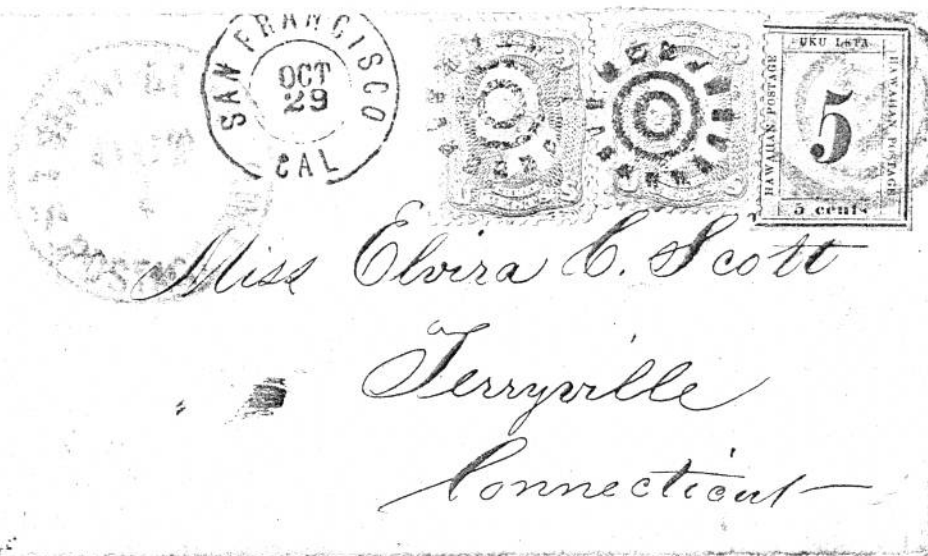 SAN FRANCISCO
OCT
29
CAL
UKU LETA
HAWAIIAN POSTAGE
5
HAWAIIAN POSTAGE
5 cents
Miss Elvira C. Scott
Terryville
Connecticut